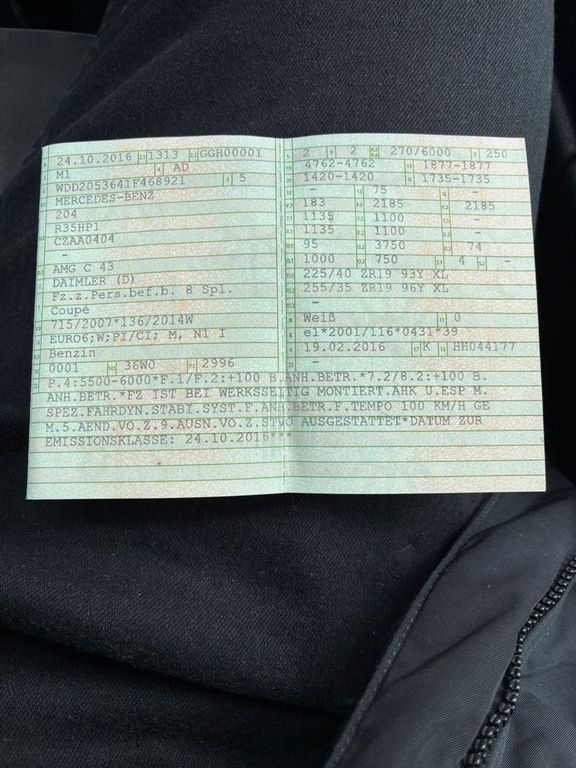 24.10.2016 1313 GGH00001
M1 AD
WDD2053641F468921 5
MERCEDES-BENZ
204
R35HP1
CZAA0404
-
AMG C 43
DAIMLER (D)
Fz.z.Pers.bef.b. 8 Spl.
Coupé
715/2007*136/2014W
EURO6;W;PI/CI; M, N1 I
Benzin
0001 36W0 2996
2 2 270/6000 250
4762-4762 1877-1877
1420-1420 1735-1735
- 75 -
183 2185 2185
1135 1100 -
1135 1100 -
95 3750 74
1000 750 4 -
225/40 ZR19 93Y XL
255/35 ZR19 96Y XL
-
Weiß 0
e1*2001/116*0431*39
19.02.2016 K HH044177
-
P.4:5500-6000*F.1/F.2:+100 B.ANH.BETR.*7.2/8.2:+100 B.
ANH.BETR.*FZ IST BEI WERKSSEITIG MONTIERT.AHK U.ESP M.
SPEZ.FAHRDYN.STABI.SYST.F.ANH.BETR.F.TEMPO 100 KM/H GE
M.5.AEND.VO.Z.9.AUSN.VO.Z.STVO AUSGESTATTET*DATUM ZUR
EMISSIONSKLASSE: 24.10.2016***